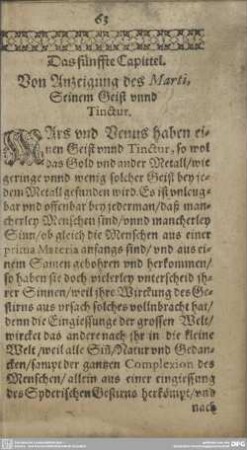 63
Das fünffte Capittel.
Von Anzeigung des Marti,
Seinem Geist vnnd
Tinctur.
MArs vnd Venus haben ei-
nen Geist vnnd Tinctur, so wol
das Gold vnd ander Metall/ wie
geringe vnnd wenig solcher Geist bey je-
dem Metall gefunden wird. Es ist vnleug-
bar vnd offenbar bey jederman/ daß man-
cherley Menschen sind/ vnnd mancherley
Sinn/ ob gleich die Menschen aus einer
prima Materia anfangs sind/ vnd aus ei-
nem Samen gebohren vnd herkommen/
so haben sie doch vielerley vnterscheid jh-
rer Sinnen/ weil jhre Wirckung des Ge-
stirns aus vrsach solches vollnbracht hat/
denn die Eingiessunge der grossen Welt/
wircket das andere nach jhr in die kleine
Welt/ weil alle Siñ/ Natur vnd Gedan-
cken/ sampt der gantzen Complexion des
Menschen/ allein aus einer eingiessung
des Syderischen Gestirns herkömpt/ vnd
nach